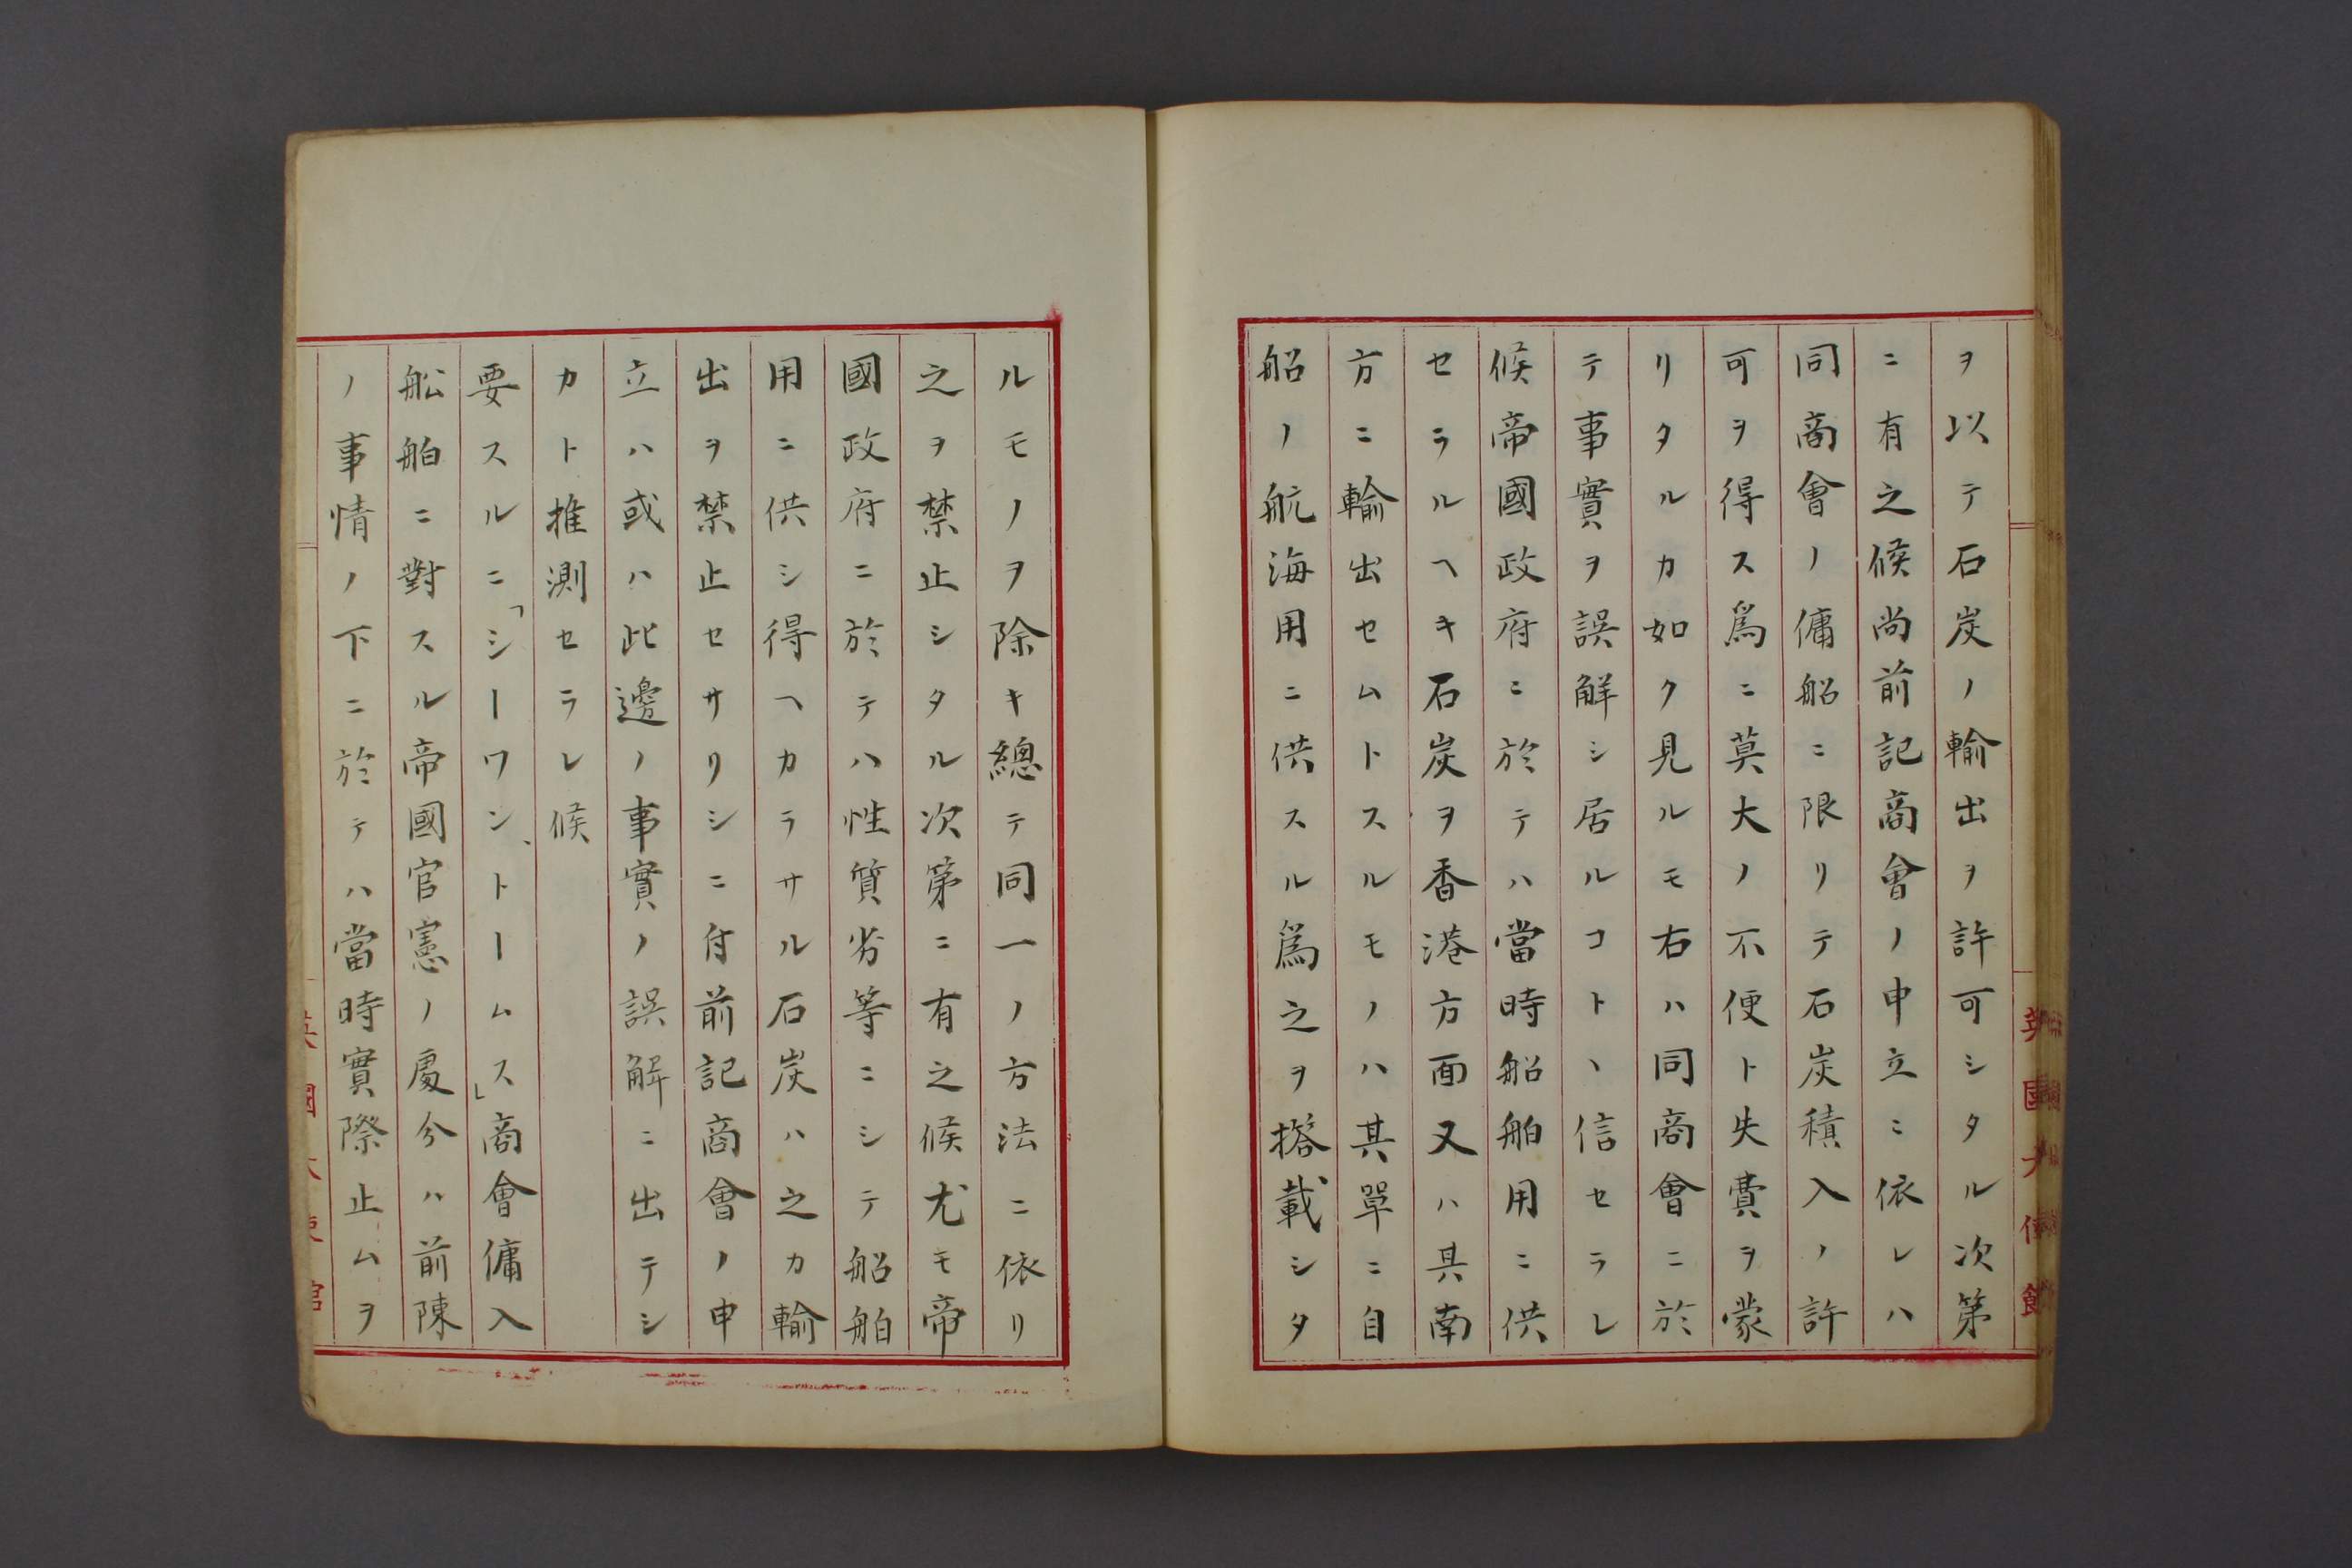 ヲ以テ石炭ノ輸出ヲ許可シタル次第
ニ有之候尚前記商會ノ申立ニ依レハ
同商會ノ傭船ニ限リテ石炭積入ノ許
可ヲ得ス爲ニ莫大ノ不便ト失費ヲ蒙
リタルカ如ク見ルモ右ハ同商會ニ於
テ事實ヲ誤解シ居ルコトヽ信セラレ
候帝國政府ニ於テハ當時船舶用ニ供
セラルヘキ石炭ヲ香港方面又ハ其南
方ニ輸出セムトスルモノハ其單ニ自
船ノ航海用ニ供スル爲之ヲ搭載シタ
英國大使館
ルモノヲ除キ總テ同一ノ方法ニ依リ
之ヲ禁止シタル次第ニ有之候尤モ帝
國政府ニ於テハ性質劣等ニシテ船舶
用ニ供シ得ヘカラサル石炭ハ之カ輸
出ヲ禁止セサリシニ付前記商會ノ申
立ハ或ハ此邊ノ事實ノ誤解ニ出テシ
カト推測セラレ候
要スルニ「シーワン、トームス」商會傭入
舩舶ニ對スル帝國官憲ノ處分ハ前陳
ノ事情ノ下ニ於テハ當時實際止ムヲ